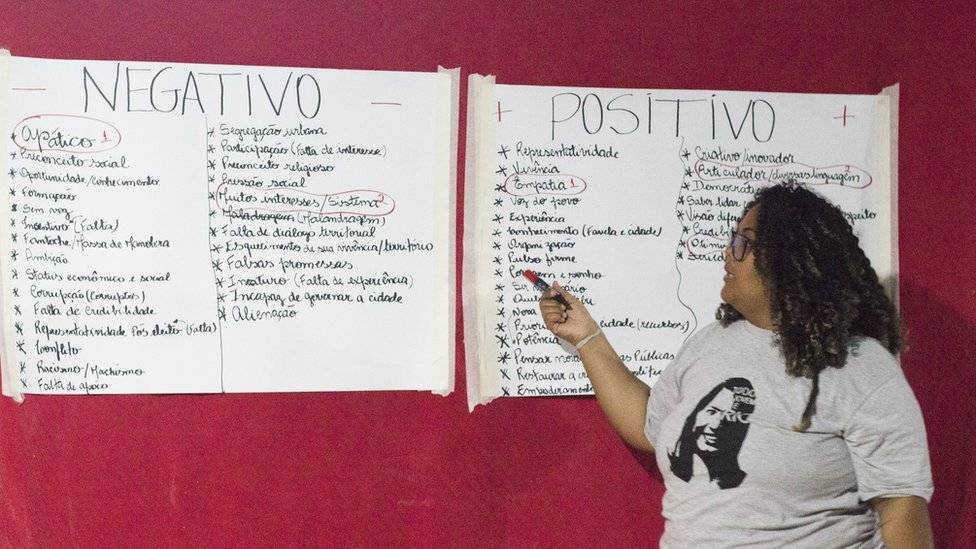 - NEGATIVO -
* Apático 1
* Preconceito social
* Oportunidade/conhecimento
* Formação
* Sem voz
* Incentivo (Falta)
* Fantoche/Massa de Manobra
* Ambição
* Status econômico e social
* Corrupção (Corruptos)
* Falta de credibilidade
* Representatividade Pós eleito (Falta)
* Conflito
* Racismo/Machismo
* Falta de apoio
* Segregação urbana
* Participação (Falta de interesse)
* Preconceito religioso
* Pressão social
* Muitos interesses/Sistema 2
* Maladragem (Malandragem)
* Falta de diálogo territorial
* Esquecimento de sua vivência/território
* Falsas promessas
* Imaturo (Falta de experiência)
* Incapaz de governar a cidade
* Alienação
+ POSITIVO +
* Representatividade
* Vivência
* Empatia 1
* Voz do povo
* Experiência
* Conhecimento (Favela e cidade)
* Organização
* Pulso firme
* e sonho
* Ser
*
* Nova
* cidade (recursos)
* Potência
* Pensar as Públicas
* Restaurar a
* Empoderamento
* Criativo/inovador
* Articulador/diversas linguagem 2
* Democrático
* Saber lidar
* Visão
*
*
*